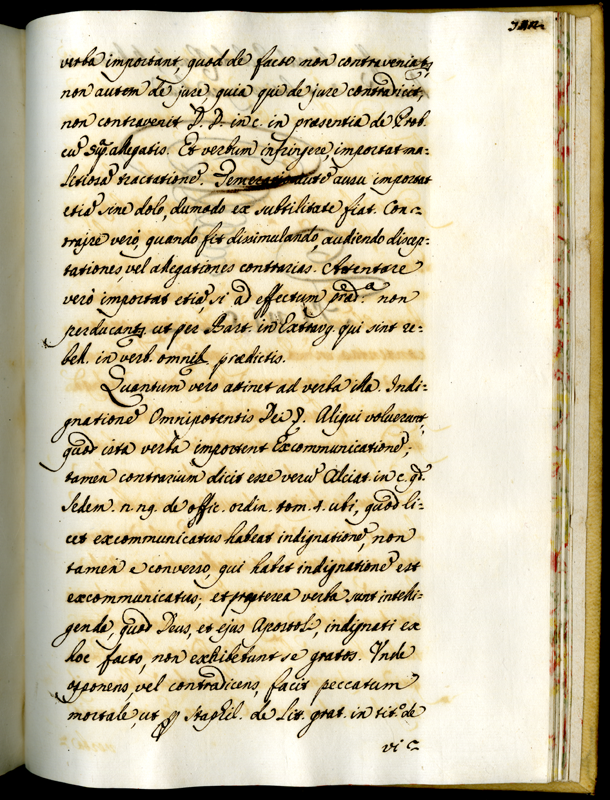 verba important quod de facto non contraveniat,
non autem de jure, quia qui de jure contradicit,
non contravenit D. D. in c. in præsentia de Prob.
cũ sup. allegatis. Et verbum infringere, importat ma-
litiosã tractationẽ. ausu importat
etiã sine dolo, dumodo ex subtilitate fiat. Con-
traire verò, quando fit dissimulando, audiendo discep-
tationes, vel allegationes contrarias. Attentare
verò importat etiã, si ad effectum præd.a non
perducant, ut per Bart. in Extravg. qui sint re-
bell. in verb. omnib. prædictis.
Quantum vero attinet ad verba illa. Indi-
gnationẽ Omnipotentis Dei. Aliqui voluerunt,
quod ista verba important Excommunicationẽ;
tamen contrarium dicit esse verũ Alciat. in c. qd.
Sedem. n. de offic. ordin. tom. 4. ubi, quod li-
cet excommunicatus habeat indignationẽ, non
tamen e converso, qui habet indignationẽ est
excommunicatus; et præterea verba sunt intelli-
genda, quod Deus, et ejus Apostoli, indignati ex
hoc facto, non exhibebunt se gratos. Unde
opponens, vel contradicens, facit peccatum
mortale, ut Staphil. de Lit. grat. in tit.o de
vi